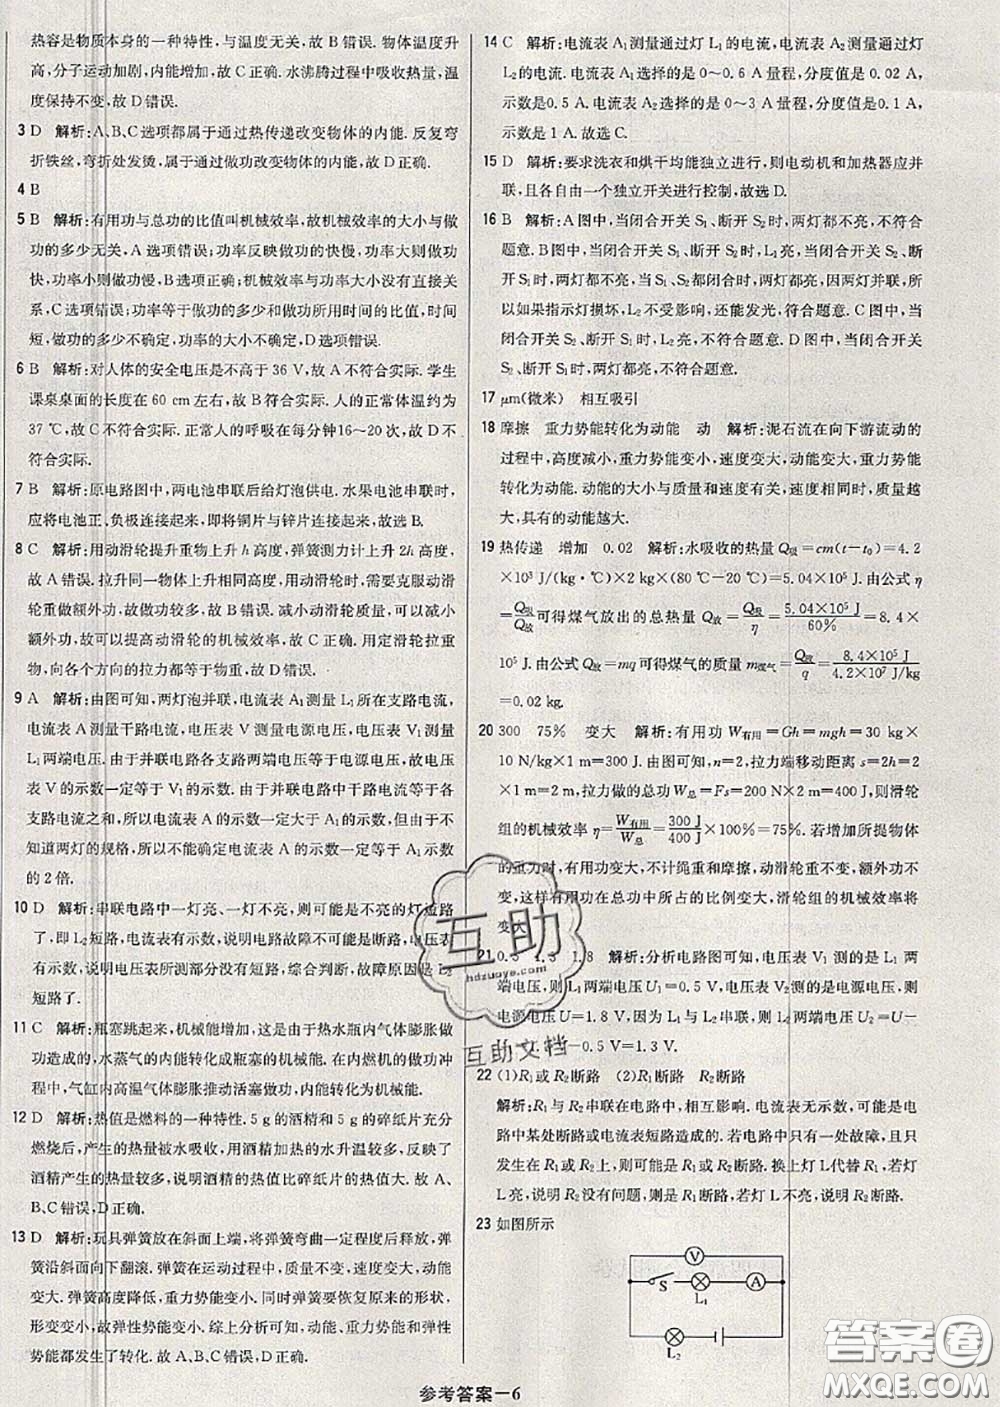 热容是物质本身的一种特性,与温度无关,故 B 错误. 物体温度升
高,分子运动加剧,内能增加,故 C 正确. 水沸腾过程中吸收热量,温
度保持不变,故 D 错误.
3 D 解析:A、B、C 选项都属于通过热传递改变物体的内能. 反复弯
折铁丝,弯折处发烫,属于通过做功改变物体的内能,故 D 正确.
4 B
5 B 解析:有用功与总功的比值叫机械效率,故机械效率的大小与做
功的多少无关,A 选项错误;功率反映做功的快慢,功率大做功
快,功率小做功慢,B 选项正确;机械效率与功率大小没有直接
关系,C 选项错误;功率等于做功的多少和做功所用时间的比值,时间
短,做功的多少不确定,功率的大小不确定,D 选项错误.
6 B 解析:对人体的安全电压是不高于 36 V,故 A 不符合实际. 学生
课桌桌面的长度在 60 cm 左右,故 B 符合实际. 人的正常体温约为
37 ℃,故 C 不符合实际. 正常人的呼吸在每分钟16～20次,故 D 不
符合实际.
7 B 解析:原电路图中,两电池串联后给灯泡供电. 水果电池串联时,
应将电池正、负极连接起来,即将铜片与锌片连接起来,故选 B.
8 C 解析:用动滑轮提升重物上升 h 高度,弹簧测力计上升 2h 高度,
故 A 错误. 拉升同一物体上升相同的高度,用动滑轮,需要克服动滑
轮重做额外功,故做功较多,故 B 错误. 减小动滑轮质量,可以减小
额外功,故可以提高动滑轮的机械效率,故 C 正确. 用定滑轮拉重
物,向各个方向的拉力都等于物重,故 D 错误.
9 A 解析:由图可知,两灯泡并联,电流表 A₁ 测量 L₁ 所在支路电流,
电流表 A 测量干路电流,电压表 V 测量电源电压,电压表 V₁ 测量
L₁ 两端电压. 由于并联电路各支路两端电压等于电源电压,故电压
表 V 的示数一定等于 V₁ 的示数. 由于并联电路中干路电流等于各
支路电流之和,所以电流表 A 的示数一定大于 A₁ 的示数. 由于不
知道两灯的规格,所以不能确定电流表 A 的示数一定等于 A₁ 示数
的 2 倍.
10 D 解析:串联电路中一灯亮、一灯不亮,则可能是不亮的灯短路
了,即 L₂ 短路,电流表有示数,说明电路故障不可能是断路,电压表
有示数,说明电压表所测部分没有短路,综合判断,故障原因是 L₂
短路了.
11 C 解析:瓶塞跳起来,机械能增加,这是由于热水瓶内气体膨胀做
功造成的,水蒸气的内能转化成瓶塞的机械能. 在内燃机的做功冲
程中,气缸内高温气体膨胀推动活塞做功,内能转化为机械能.
12 D 解析:热值是燃料的一种特性. 5 g 的酒精和 5 g 的碎纸片充分
燃烧后,产生的热量被水吸收,用酒精加热的水升温较多,反映了
酒精产生的热量较多,说明酒精的热值比碎纸片的热值大. 故 A、
B、C 错误,D 正确.
13 D 解析:玩具弹簧放在斜面上端,将弹簧弯曲一定程度后释放,弹
簧沿斜面向下翻滚. 弹簧在运动过程中,质量不变,速度变大,动能
变大. 弹簧高度降低,重力势能变小. 弹簧要恢复原来的形状,
形变变小,故弹性势能变小. 综上分析可知,动能、重力势能和弹性势
能都发生了转化. 故 A、B、C 错误,D 正确.
14 C 解析:电流表 A₁ 测量通过灯 L₁ 的电流,电流表 A₂ 测量通过灯
L₂ 的电流. 电流表 A₁ 选择的是 0～0.6 A 量程,分度值是 0.02 A,
示数是0.5 A. 电流表 A₂ 选择的是 0～3 A 量程,分度值是0.1 A,
示数是 1 A. 故选 C.
15 D 解析:要求洗衣和烘干均能独立进行,则电动机和加热器应并
联,且各自由一个独立开关进行控制,故选 D.
16 B 解析:A 图中,当闭合开关 S₁、断开 S₂时,两灯都不亮,不符合
题意. B 图中,当闭合开关 S₁、断开 S₂时,L₁亮,当闭合开关 S₂、断开
S₁时,两灯都不亮,当 S₁、S₂都闭合时,两灯都亮,因两灯并联,所
以若指示灯损坏,L₂不受影响,还能发光,符合题意. C 图中,当闭
合开关 S₁、断开 S₂时,两灯都亮,不符合题意. D 图中,当闭合开关
S₂、断开 S₁时,两灯都亮,不符合题意.
17 μm(微米) 相互吸引
18 摩擦 重力势能转化为动能 动 解析:泥石流在向下游流动的
过程中,高度减小,重力势能变小,速度变大,动能变大,重力势能
转化为动能. 动能的大小与质量和速度有关,速度相同时,质量越
大,具有的动能越大.
19 热传递 增加 0.02 解析:水吸收的热量 Q吸=cm(t-t₀)=4.2
×10³ J/(kg·℃)×2 kg×(80 ℃-20 ℃)=5.04×10⁵ J. 由公式 η
=Q吸/Q放 可得煤气放出的总热量 Q放=Q吸/η=5.04×10⁵ J/60%=8.4×
10⁵ J. 由公式 Q放=mq 可得煤气的质量 m煤气=Q放/q=8.4×10⁵ J/4.2×10⁷ J/kg
=0.02 kg.
20 300 75% 变大 解析:有用功 W有用=Gh=mgh=30 kg×
10 N/kg×1 m=300 J. 由图可知,n=2,拉力端移动距离 s=2h=2
×1 m=2 m,拉力做的总功 W总=Fs=200 N×2 m=400 J,则滑轮
组的机械效率 η=W有用/W总=300 J/400 J=75%. 若增加所提物体
的重力时,有用功变大,不计绳重和摩擦,动滑轮重不变,额外功不
变,这样有用功在总功中所占的比例变大,滑轮组的机械效率将
变大.
21 0.5 1.3 1.8 解析:分析电路图可知,电压表 V₁ 测的是 L₁ 两
端电压,则 L₁ 两端电压 U₁=0.5 V,电压表 V 测的是电源电压,则
电源电压 U=1.8 V,因为 L₁ 与 L₂ 串联,所以 L₂ 两端电压 U₂=U-
U₁=1.8 V-0.5 V=1.3 V.
22 (1)R₁或 R₂断路 (2)R₁断路 R₂断路
解析:R₁与 R₂串联在电路中,相互影响. 电流表无示数,可能是电
路中某处断路或电流表短路造成的. 若电路中只有一处故障,且只
发生在 R₁或 R₂上,则可能是 R₁或 R₂断路. 换上灯 L代替 R₁,若灯
L 亮,说明 R₂没有问题,则是 R₁断路,若灯 L不亮,说明 R₂断路.
23 如图所示
V
S L₁ A
L₂
参考答案—6
互助
hdzuoye.com
互助文档
答案圈
MXQE.COM